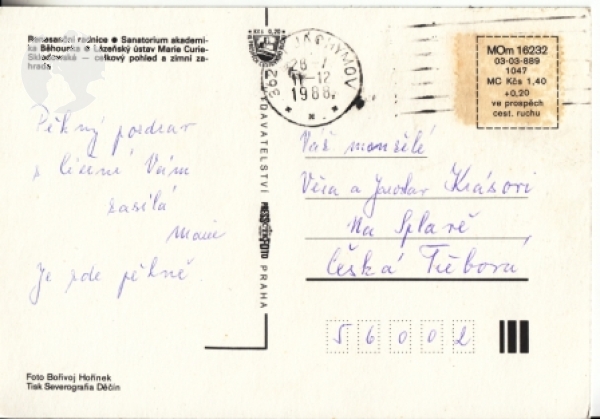 Renesanční radnice ● Sanatorium akademi-
ka Běhounka ● Lázeňský ústav Marie Curie-
Skłodowské — celkový pohled a zimní za-
hrada
Kčs 0,20
362 JÁCHYMOV
28.-7
11-12
1988
MOm 16232
03-03-889
1047
MC Kčs 1,40
+0,20
ve prospěch
cest. ruchu
Pěkný pozdrav
z léčení Vám
zasílá
Marie
Je zde pěkně.
VYDAVATELSTVÍ
PRESSFOTO
PRAHA
Váž manželé
Věra a Jaroslav
Na Splavě
Česká Třebová
56002
Foto Bořivoj Hořínek
Tisk Severografia Děčín